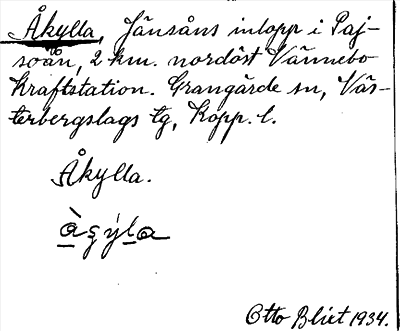 Åkylla, Jänsåns inlopp i Paj-
soån, 2 km. nordöst Vännebo
Kraftstation. Grangärde sn, Väs-
terbergslags tg, Kopp. l.
Åkylla.
Otto Blixt 1934.